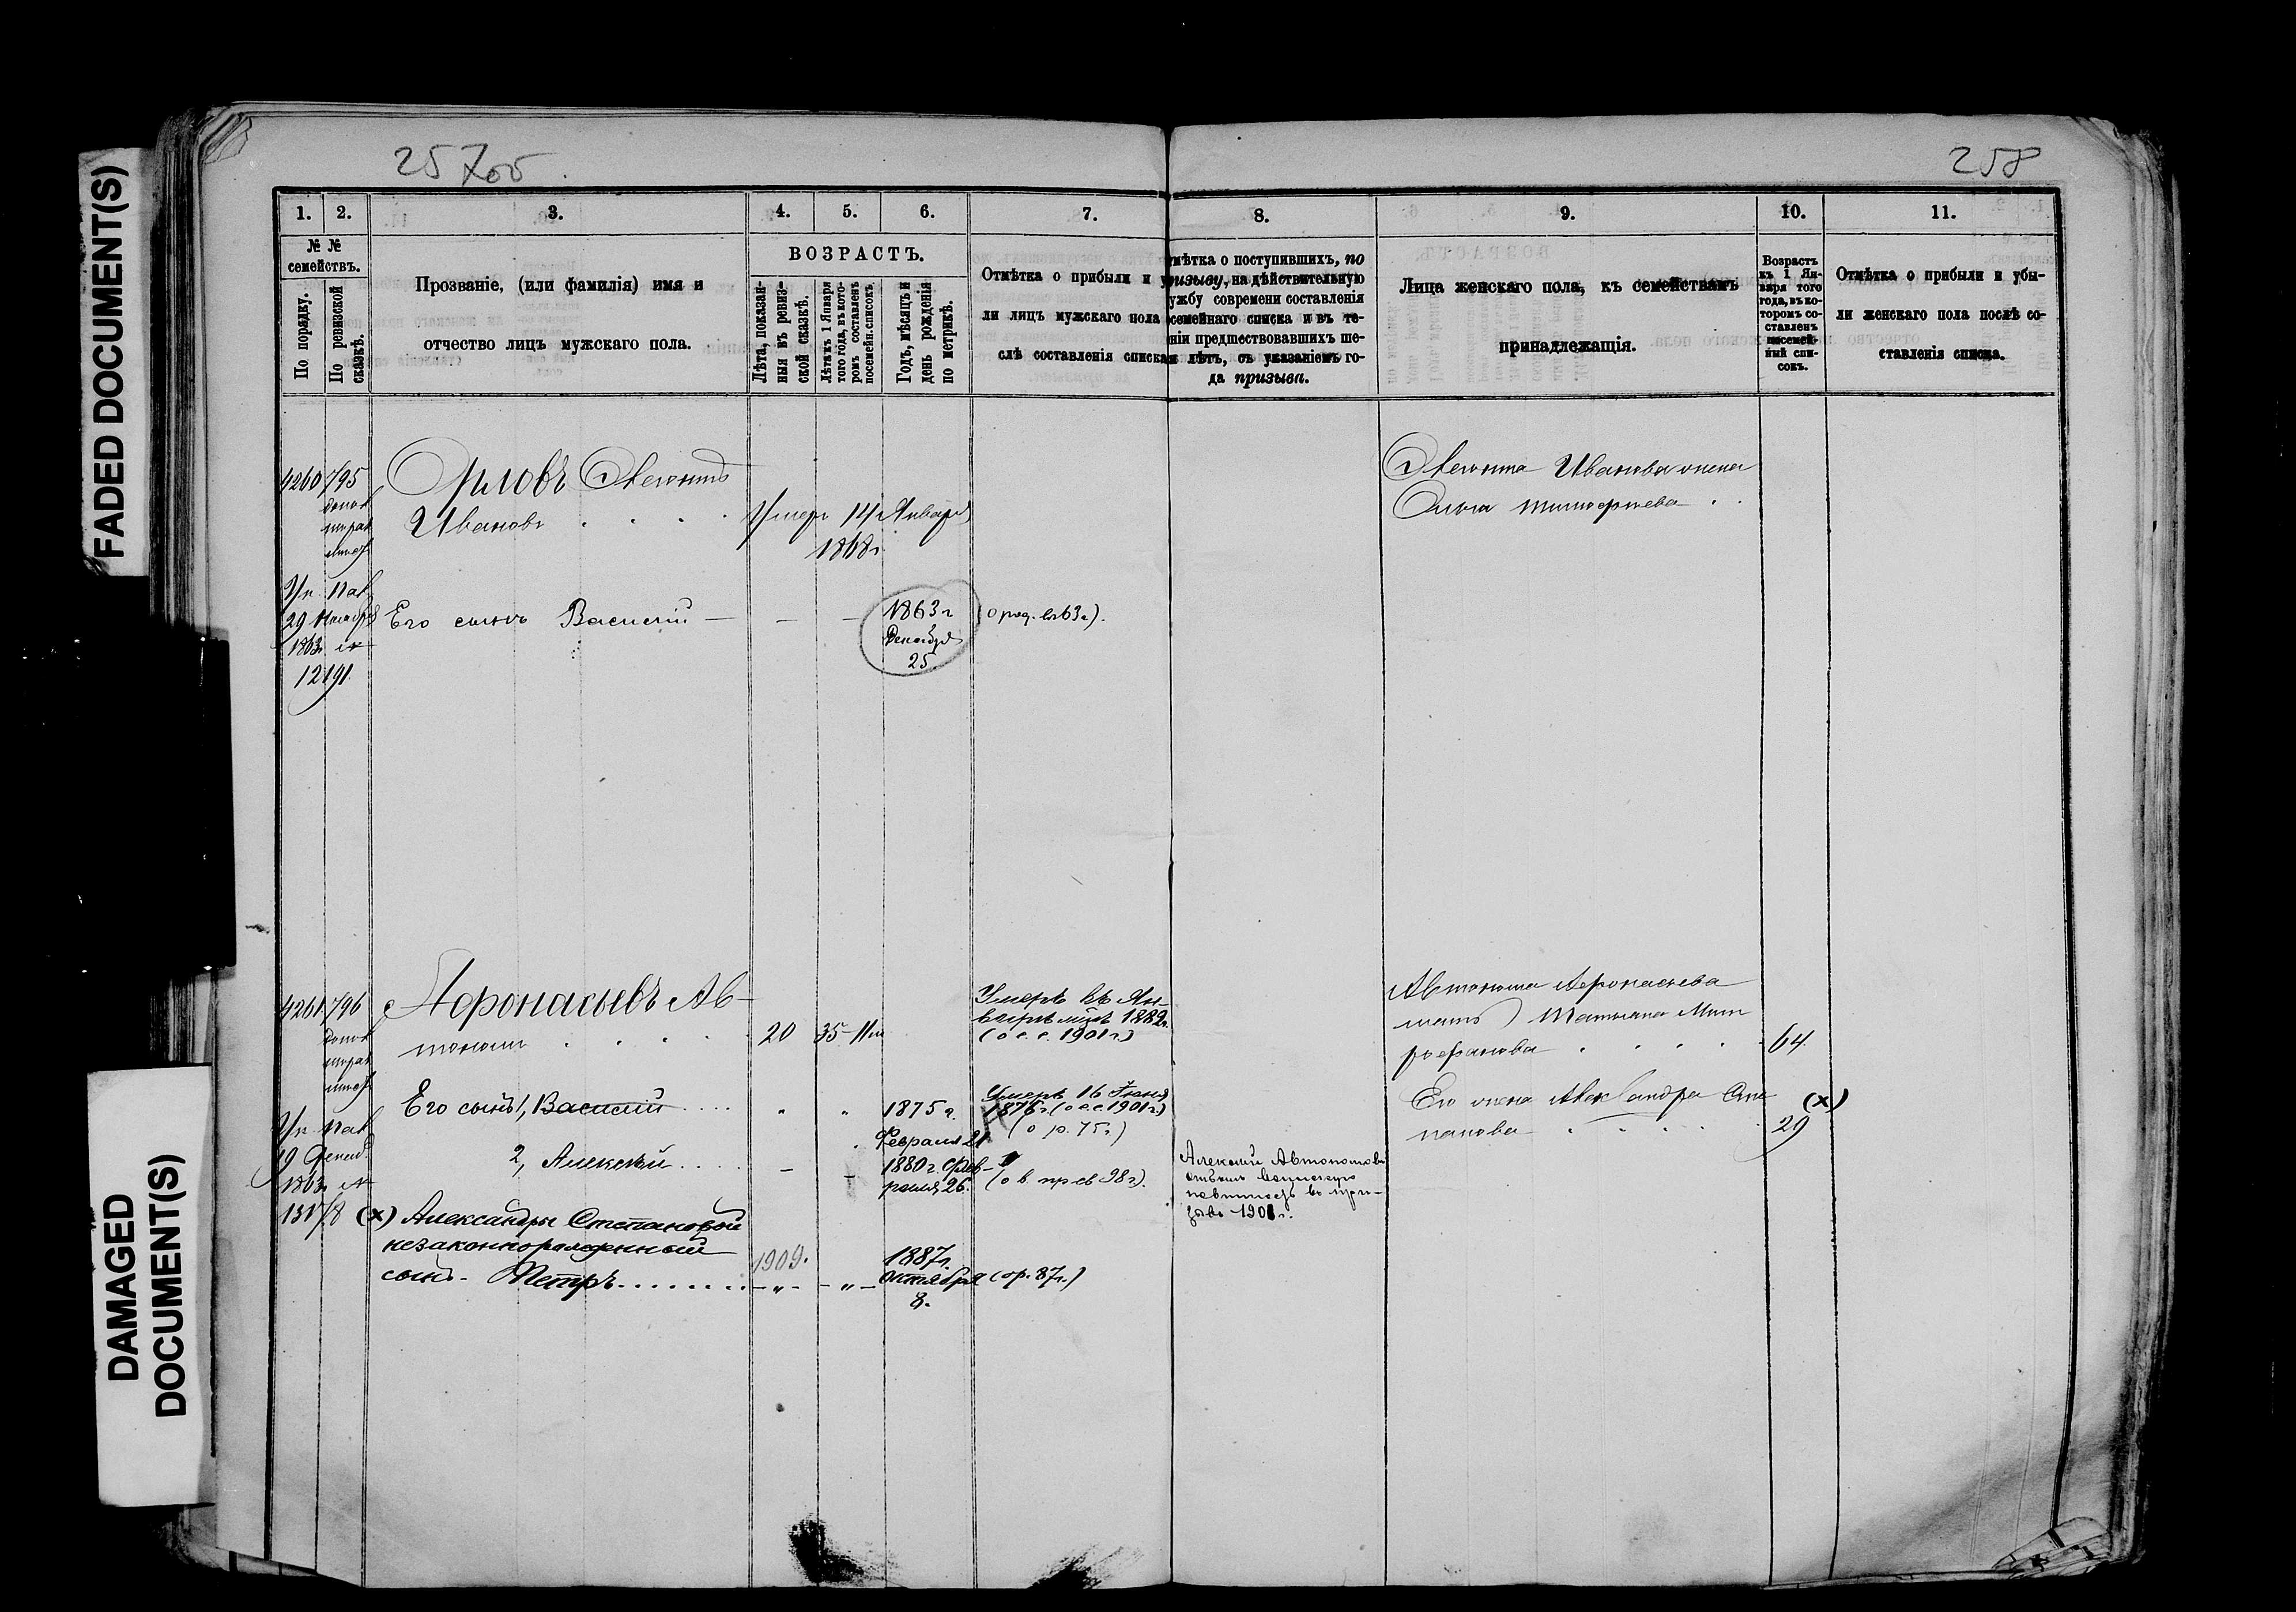 FADED DOCUMENT(S)
DAMAGED
DOCUMENT(S)
258
1.
2.
3.
4.
5.
6.
7.
8.
9.
10.
11.
№ №
семействъ.
По порядку.
По ревизской
сказкѣ.
Прозваніе, (или фамилія) имя и
отчество лицъ мужскаго пола.
ВОЗРАСТЪ.
Лѣта, показан-
ныя въ ревиз-
ской сказкѣ.
Лѣта къ 1 Января
того года, въ кото-
ромъ составленъ
посемейн. списокъ.
Годъ, мѣсяцъ и
день рожденія
по метрикѣ.
Отмѣтка о прибыли и у
ли лицъ мужскаго пола
слѣ составленія списка
мѣтка о поступившихъ, по
ризыву, на дѣйствительную
ужбу современи составленія
семейнаго списка и въ те-
ніи предшествовавшихъ ше-
и лѣтъ, съ указаніемъ го-
да призыва.
Лица женскаго пола, къ семействамъ
принадлежащія.
Возрастъ
къ 1 Ян-
варя того
года, въ ко-
торомъ со-
ставленъ
посемей-
ный спи-
сокъ.
Отмѣтка о прибыли и убы-
ли женскаго пола послѣ со-
ставленія списка.
4260 795
Орловъ Леонтій
Ивановъ
Умеръ 14 Января
1868г.
Леонтія Иванова жена
Ольга Тимофѣева
Ук. Пал.
29 Ноября
1863 №
12191
Его сынъ Василій
1863 г
Декабря
25.
(о род. въ 63г).
4261 796
Афонасьевъ Ав-
тономъ
20
35-11м
Умеръ въ Ян-
варѣ мѣс. 1882г.
(о с. с. 1901 г.)
Автонома Афонасьева
мать Татьяна Мит
рофанова
64
Его сынъ 1, Василій
1875 г.
Февраля 21
Умеръ 16 Іюня
1876 г. (о с.с. 1901г.)
(о р. 75г.)
Его жена Александра Сте
панова
29
(х)
Ук. Пал.
1863 №
2, Алексѣй
1880 г. Фев-
раля 26.
(о в пр. св 98 г.).
Алексѣй Автономовъ
отбылъ воинскую
повинность въ при-
зывъ 1901 г.
(х) Александры Степановой
незаконнорожденный
сынъ - Петръ
1909.
1887г.
Октября
8.
(о р. 87г.)